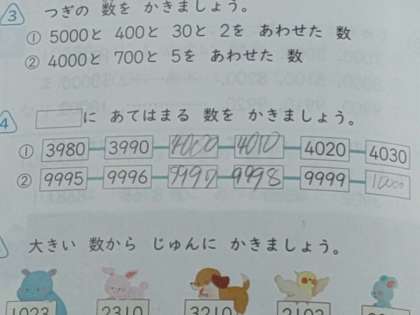 3 つぎの 数を かきましょう。
① 5000と 400と 30と 2を あわせた 数
② 4000と 700と 5を あわせた 数
4 □に あてはまる 数を かきましょう。
① 3980 3990 4000 4010 4020 4030
② 9995 9996 9997 9998 9999 10000
大きい 数から じゅんに かきましょう。
1023 2310 3210 2103